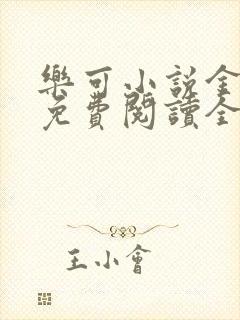 樂可小説全
免費閱讀全
王小會